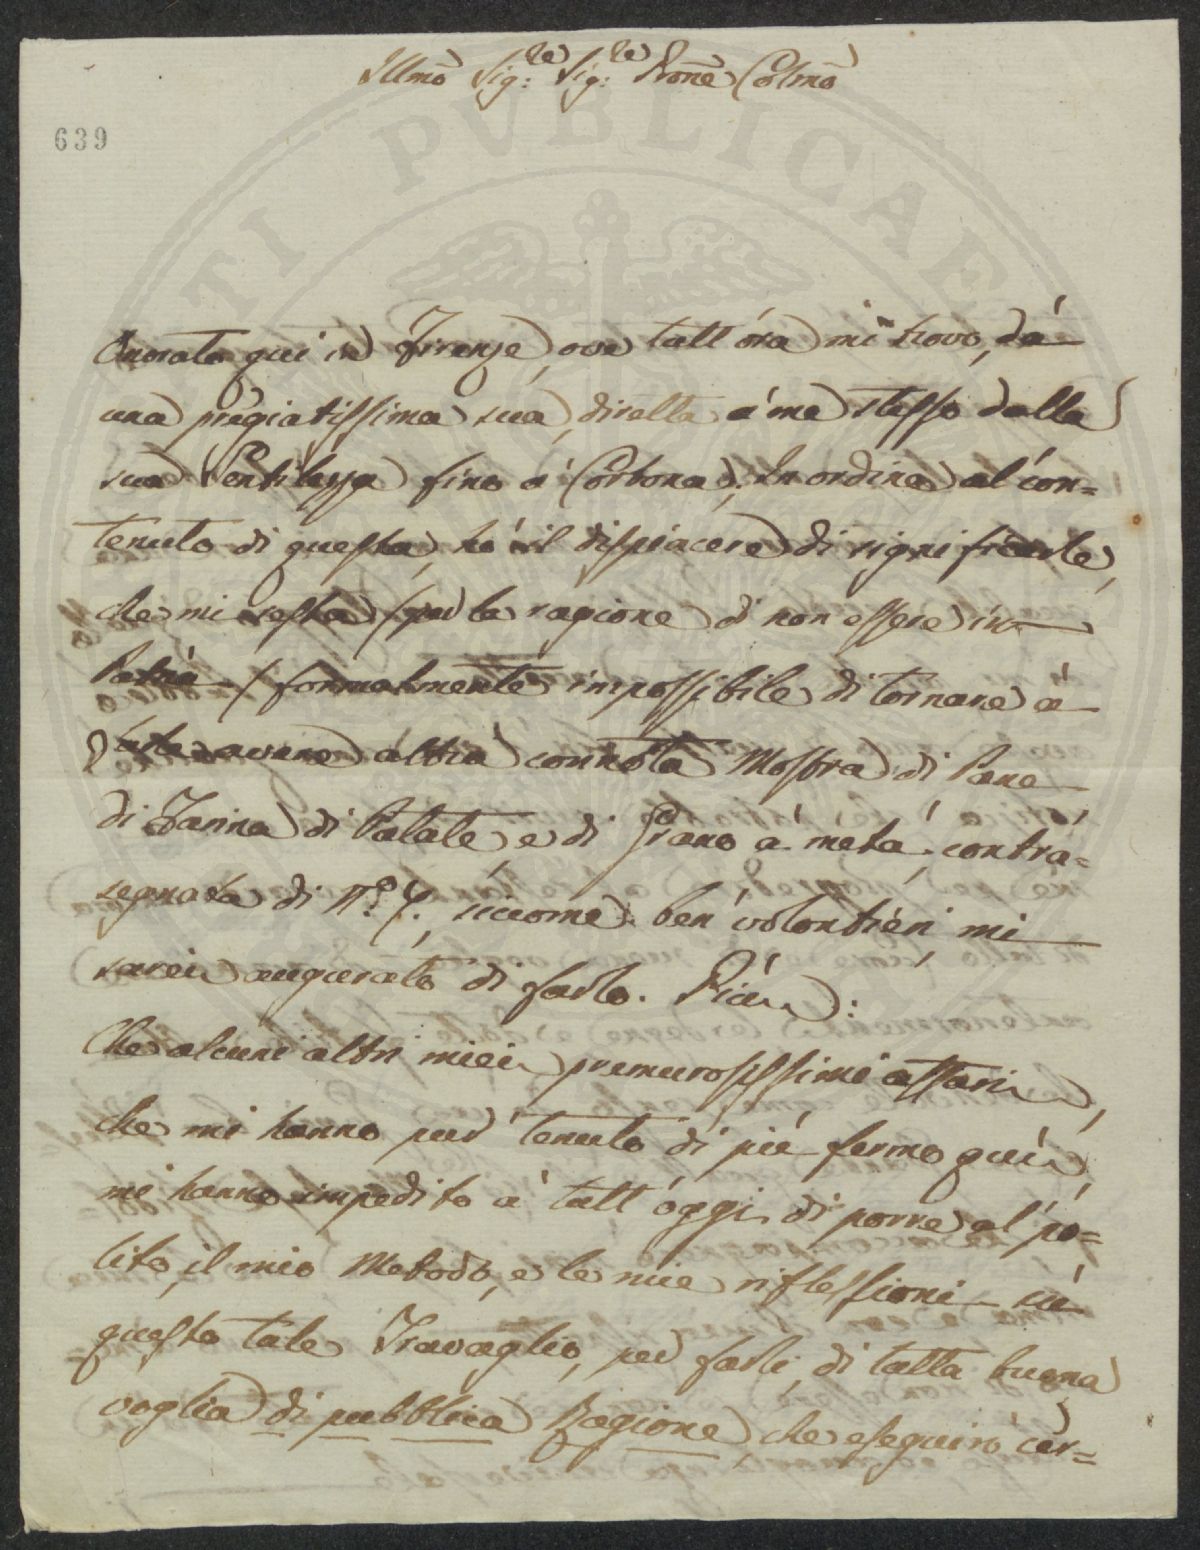 Illmo Sig:re Sig:re Prone Colmo
639
Onorato qui in Firenze, ove tutt'óra mi trovo, dá
una pregiatissima sua, diretta á me stesso dalla
sua Gentilezza fino á Cortona; In ordine al con=
tenuto di questa, hó il dispiacere di significarle,
che mi resta /per la ragione di non essere in
Patria / formalmente impossibile di tornare á
farle avere áltra connota Mostra di Pane
di Farina di Patate e di Grano á metá, contra=
segnata di N.o 7., siccome ben volontieri mi
sarei augurato di farlo. Piú:
Che alcuni altri miei premurosissimi affari,
che mi hanno pur tenuto di piú fermo quí,
mi hanno impedito á tutt'óggi di porre al po=
lito, il mio Metodo, e le mie riflessioni sú
questo tale Travaglio, per farli, di tutta buona
voglia di pubblica Ragione che eseguiró cer=